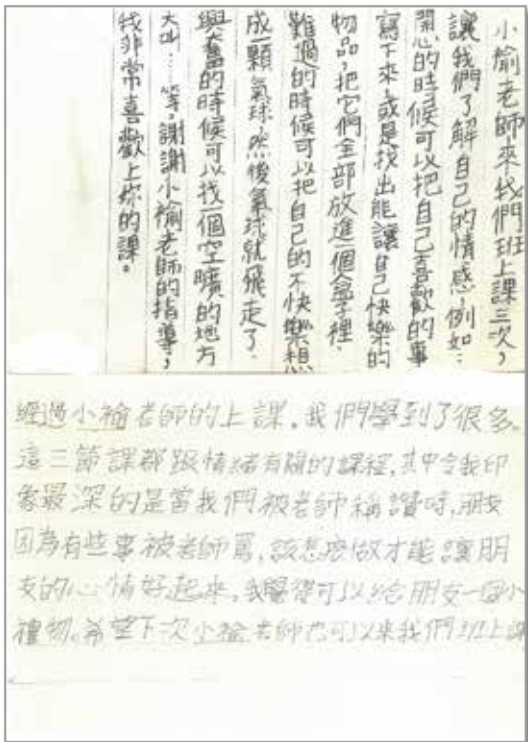 小褕老師來我們班上課三次，
讓我們了解自己的情感，例如：
開心的時候可以把自己喜歡的事
寫下來，或是找出能讓自己快樂的
物品，把它們全部放進一個盒子裡，
難過的時候可以把自己的不快樂想
成一顆氣球，然後氣球就飛走了，
興奮的時候可以找一個空曠的地方
大叫……等，謝謝小褕老師的指導，
我非常喜歡上妳的課。
經過小褕老師的上課，我們學到了很多。
這三節課都跟情緒有關的課程，其中令我印
象最深的是當我們被老師稱讚時，朋友
因為有些事被老師罵，該怎麼做才能讓朋
友的心情好起來，我覺得可以給朋友一個小
禮物。希望下次小褕老師也可以來我們班上課